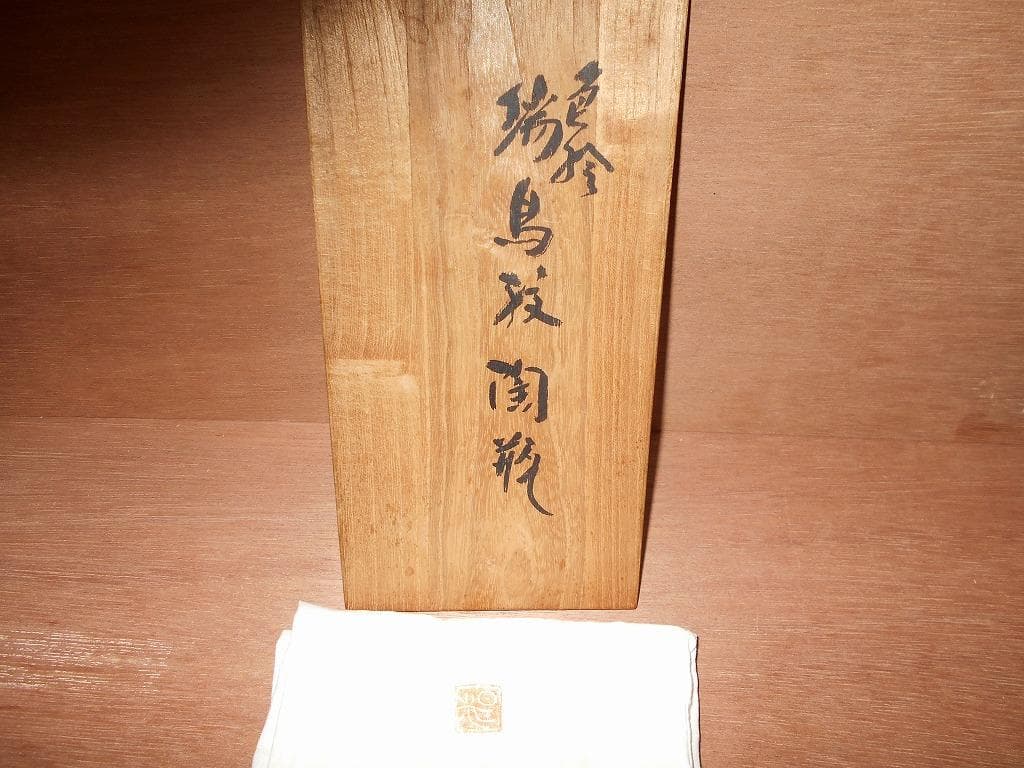 色絵
瑞鳥紋陶瓶